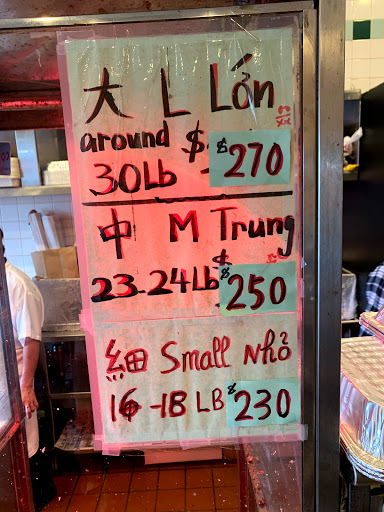 大 L Lớn
around $ $270
30Lb
中 M Trung
23-24Lb $ $250
細 Small Nhỏ
16-18 LB $230